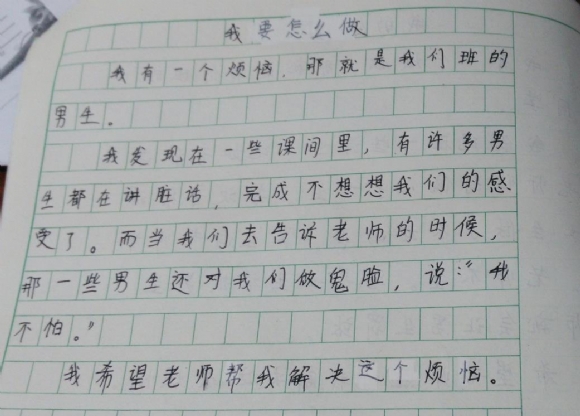 我要怎么做
我有一个烦恼，那就是我们班的
男生。
我发现在一些课间里，有许多男
生都在讲脏话，完成不想想我们的感
受了。而当我们去告诉老师的时候，
那一些男生还对我们做鬼脸，说：“我
不怕。”
我希望老师帮我解决这个烦恼。